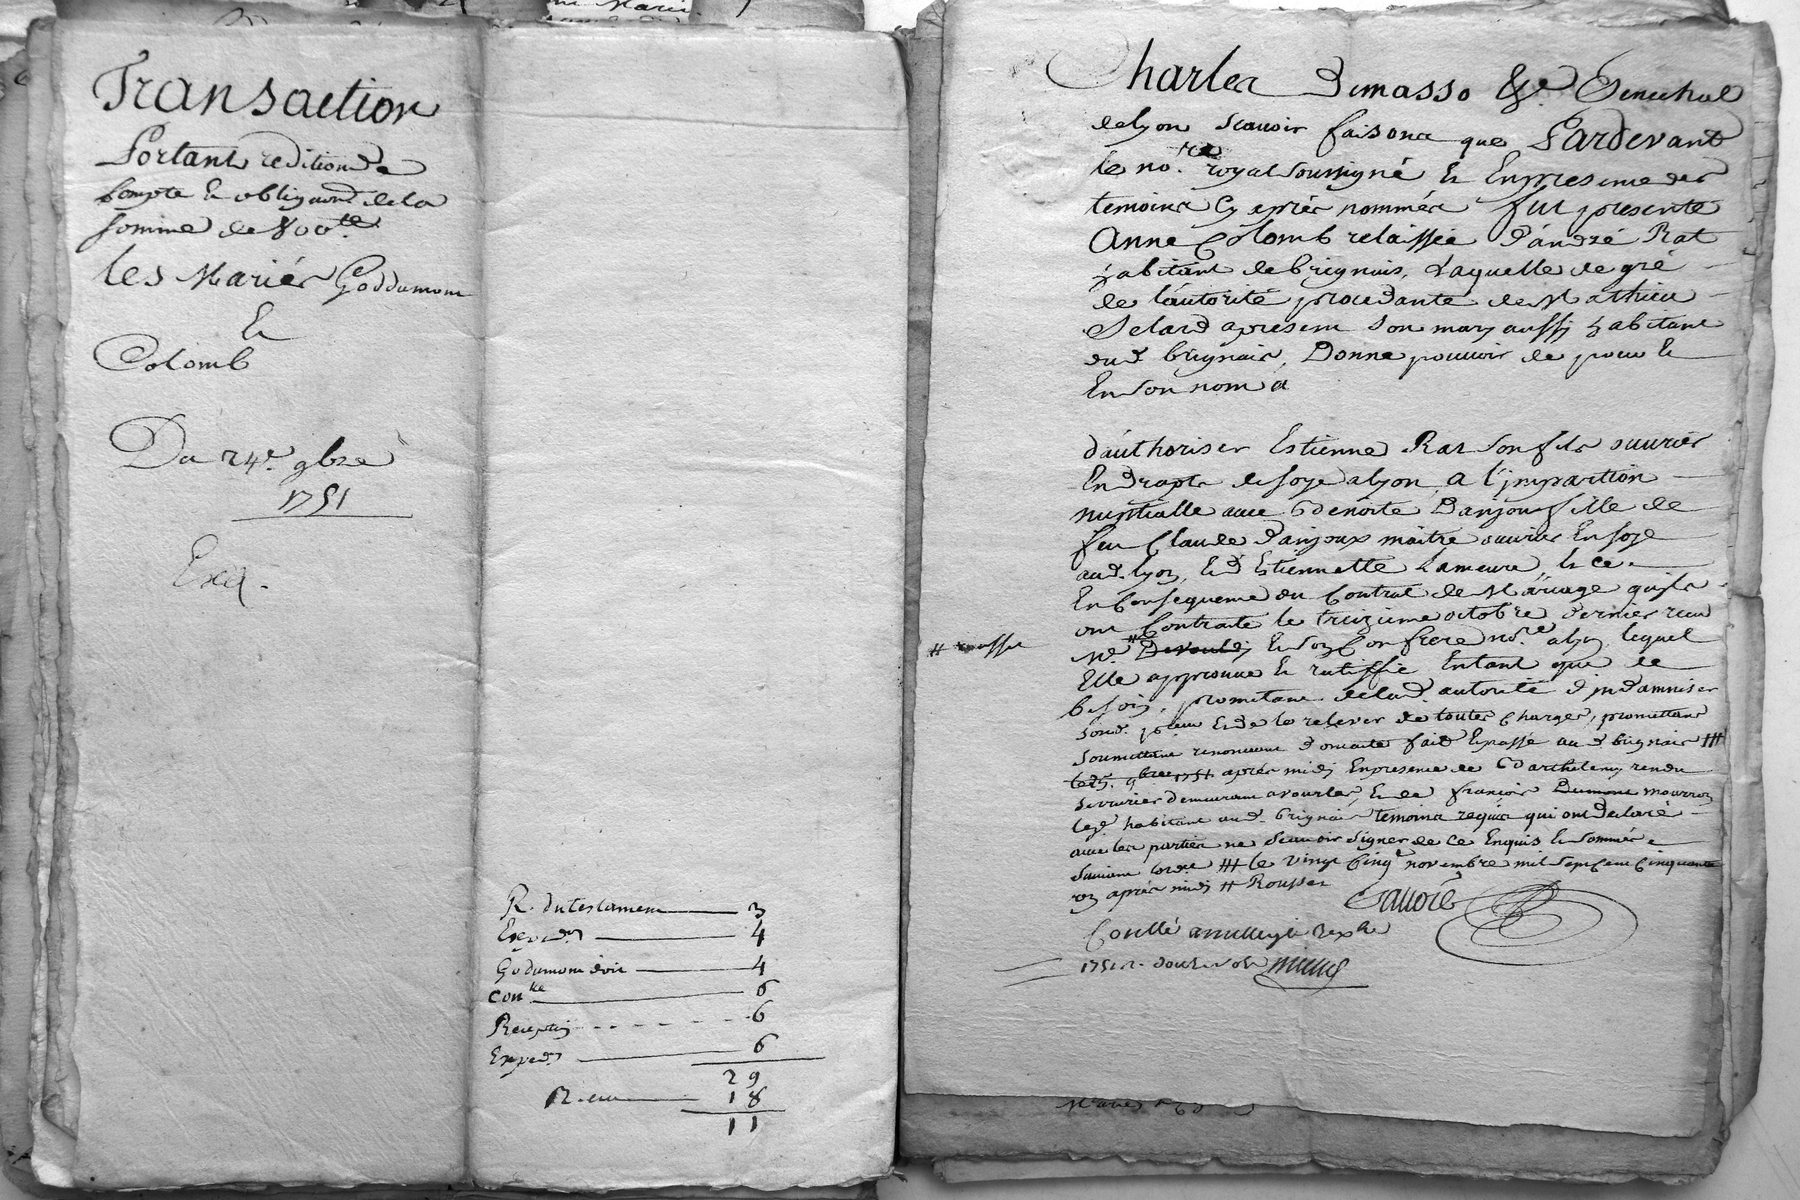 Transaction
Portant redition de
Compte et obligaon de la
somme de 800 lt
les Mariés Goddumont
Et
Colomb
Du 24e 9bre
1751
Exq.
R. du testament 3
Expedon 4
Godumont doit 4
con lle 6
Reception 6
Expedon 6
29
R. eu 18
11
Charles Demasso &c. Senechal
de lyon scauoir faisons que Pardevant
le nore royal soussigné et En presence des
temoins Cy aprés nommés fut presente
Anne Colomb relaissée d'andré Rat
habitant de brignais, Laquelle de gré
de l'autorité procedante de Mathieu
Selard apresent son mary aussy habitant
dud brignais, Donne pouuoir de pour et
En son nom a
d'authoriser Estienne Rat son fils ouurier
En draps de soye a lyon a l'impartion
nuptialle auec Benoite Danjoux fille de
feu Claude Danjoux maitre ouurier En soye
aud. lyon, et d'Estiennette Lameure, et ce
En Consequence du Contrat de Mariage quils
ont Contracté le treizieme octobre dernier receu
Me # Et son Confrere nore a lyon lequel
# rousset
Elle approuue et ratiffie Entant que de
besoin, promettant de lad. autorité d'indamniser
sond. et de le releuer de toutes Charges, promettant
soumettant renonceant d'ont acte fait et passé aud brignais ///
9bre 1751 aprés midy En presence de Barthelemy rendu
serrurier demeurant a vourles, et de francois Dumont mourron
leg. habitant aud. brignais temoins requis qui ont declaré
auec les parties ne Scauoir signer de ce Enquis et sommés
suivant lord. /// le vingt Cinq novembre mil sept Cent Cinquante
un aprés midy # Rousset
Conllé a
1751 R. douze sols